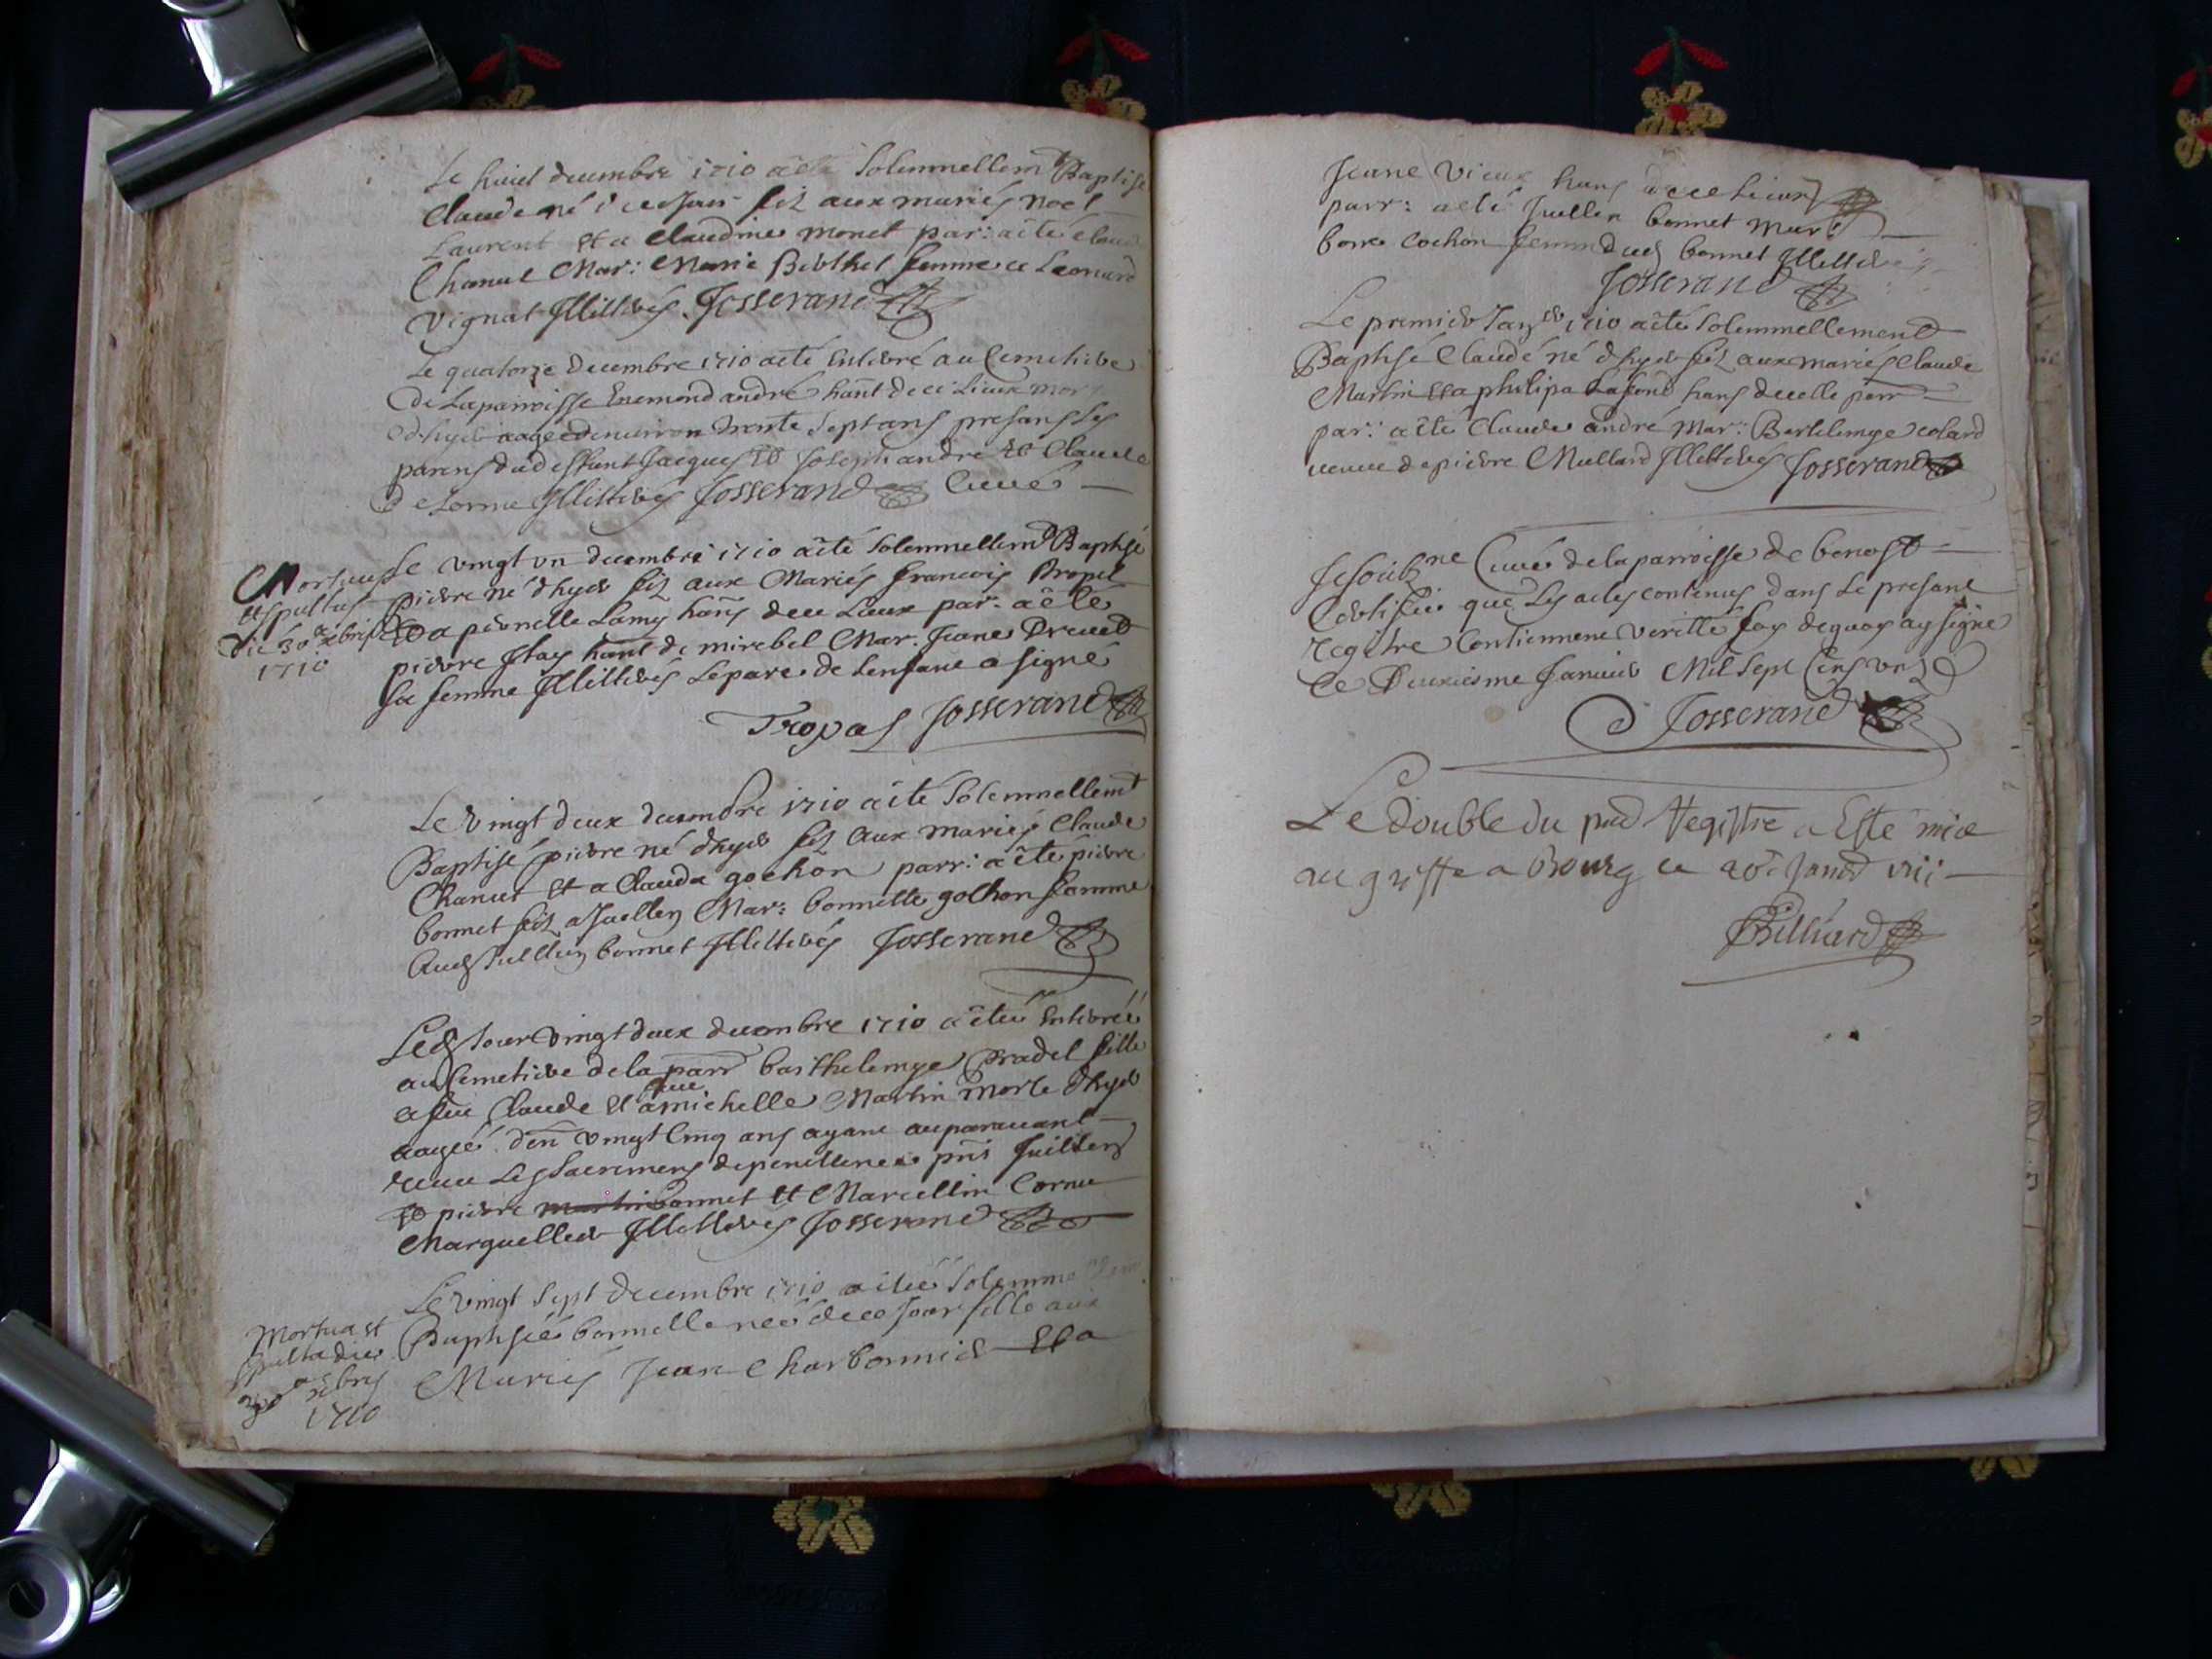 Le huict decembre 1710 a été Solemnellemt Baptisé
Claude né de ce Jour filz aux mariés noel
Laurent Et a Claudine monet par: a été Claude
Chanut Mar: Marie Berthet femme a Leonard
Vignat Illitterés Josserand
Le quatorze decembre 1710 a été Enterré au Cemetiere
De La parroisse Enemond andré hant de ce Lieux mort
d'hyer aagé d'environ trente Sept ans presans les
parens dud deffunt Jacques Et Joseph andré Et Claude
Delorme Illitterés Josserand Curé
Mortuus
Et sepultus
Die 30a xbris
1710
Le vingt un decembre 1710 a été Solemnellemt Baptisé
pierre né d'hyer filz aux Mariés francois Tropel
Et a pernelle Lamy hans de ce Lieux par: a été
pierre Flay hant de mirebel Mar: Jeane Drevet
sa femme Illitterés Le pare de Lenfant a signé
Tropas Josserand
Le Vingt deux decembre 1710 a été Solemnellemt
Baptisé pierre né d'hyer filz Aux mariés Claude
Chanut Et a Clauda gochon parr: a été pierre
bonnet filz a Juellien Mar: bonnette gochon famme
Aud Juellien bonnet Illitterés Josserand
Led Jour Vingt deux decembre 1710 a été Enterrée
au Cemetiere de la parr barthelemye Pradel fille
a feu Claude Et a feue michelle Martin morte d'hyer
aagée d'en vingt Cinq ans ayant auparavant
receu Les Sacremens de penittence pns Juillien
Et pierre bonnet Et Marcellin Cornu
Marguellier Illitterés Josserand
Mortua et
Sepulta die
30a xbris
1710
Le Vingt Sept decembre 1710 a été Solemnellem
Baptisée bonnette née de ce Jour fille aux
Mariés Jean Charbonnier Et a
Jeane Vieux hans de ce Lieux
parr: a été Juellien bonnet Mar:
bone Cochon femm dud bonnet Illitterés
Josserand
Le premier Janer 1710 a été Solemnellement
Baptisé Claude né d'hyer filz aux mariés Claude
Martin Et a philipa Lafont hans de celle parr
par: a été Claude andré Mar: Bertelemye colard
veuve de pierre Mullard Illitterés Josserand
Je Soubzne Curé de la parroisse de benost
Certiffie que Les actes contenus dans Le presant
registre Contiennent verité foy de quoy ay signé
Ce Deuxiesme Janvier Mil Sept Cens unze
Josserand
Le double du pnt Registre a Esté mis
au greffe a Bourg ce 20e Janvr 1711
Billiard